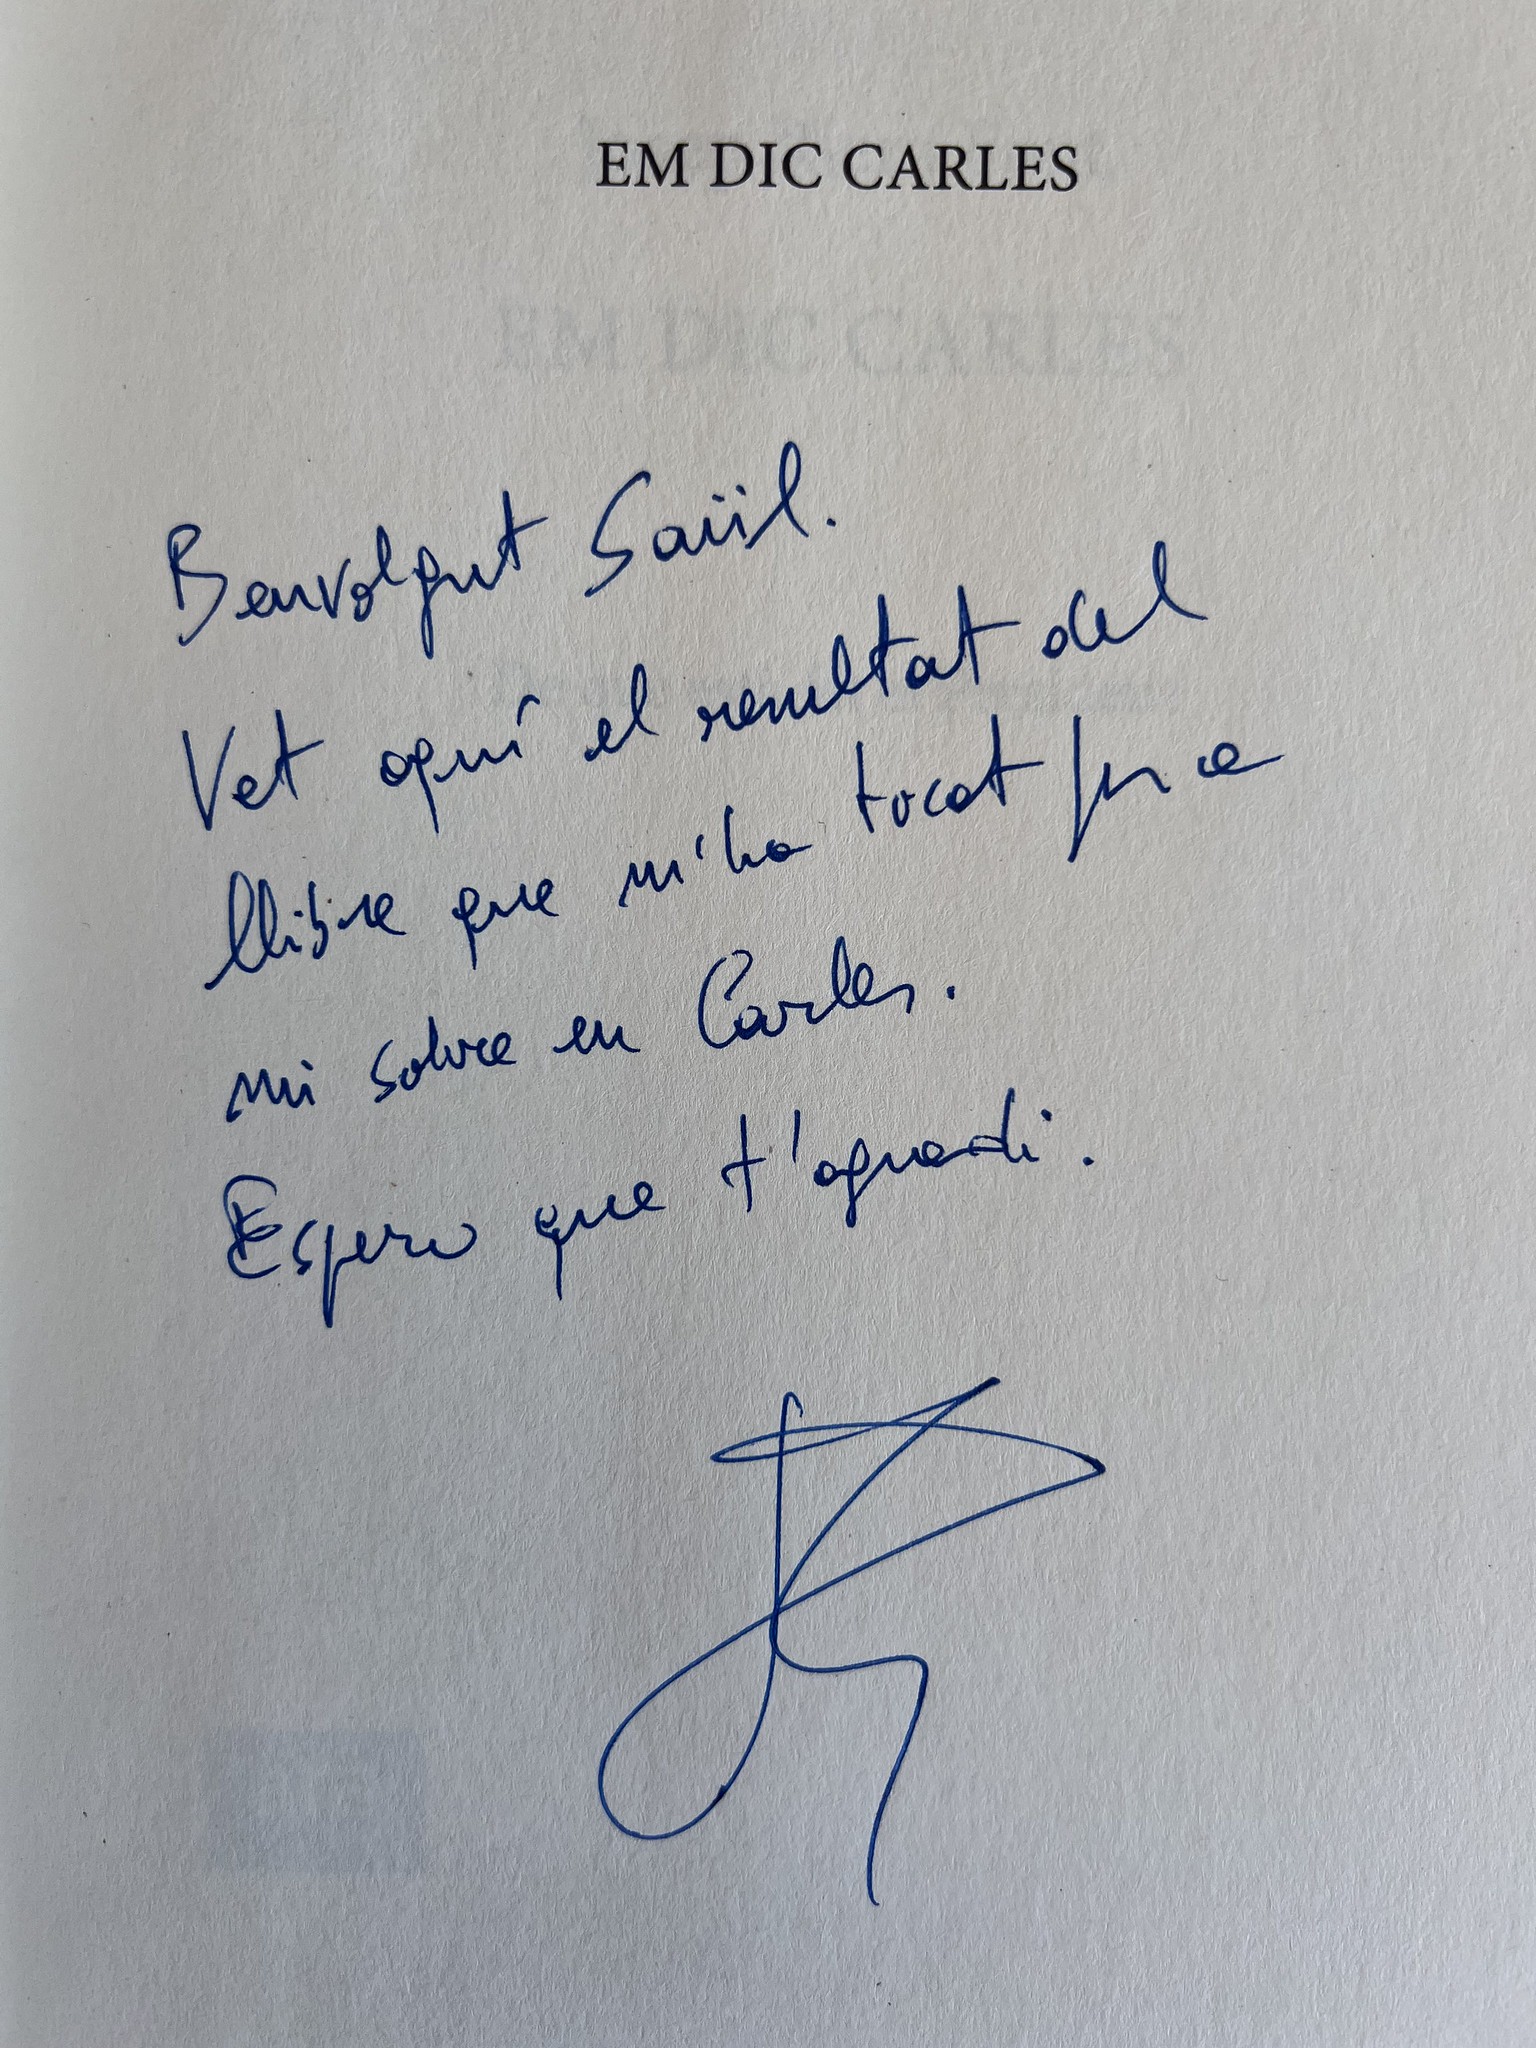 EM DIC CARLES
Benvolgut Saül.
Vet aquí el resultat del
llibre que m'ha tocat fer a
mi sobre en Carles.
Espero que t'agradi.